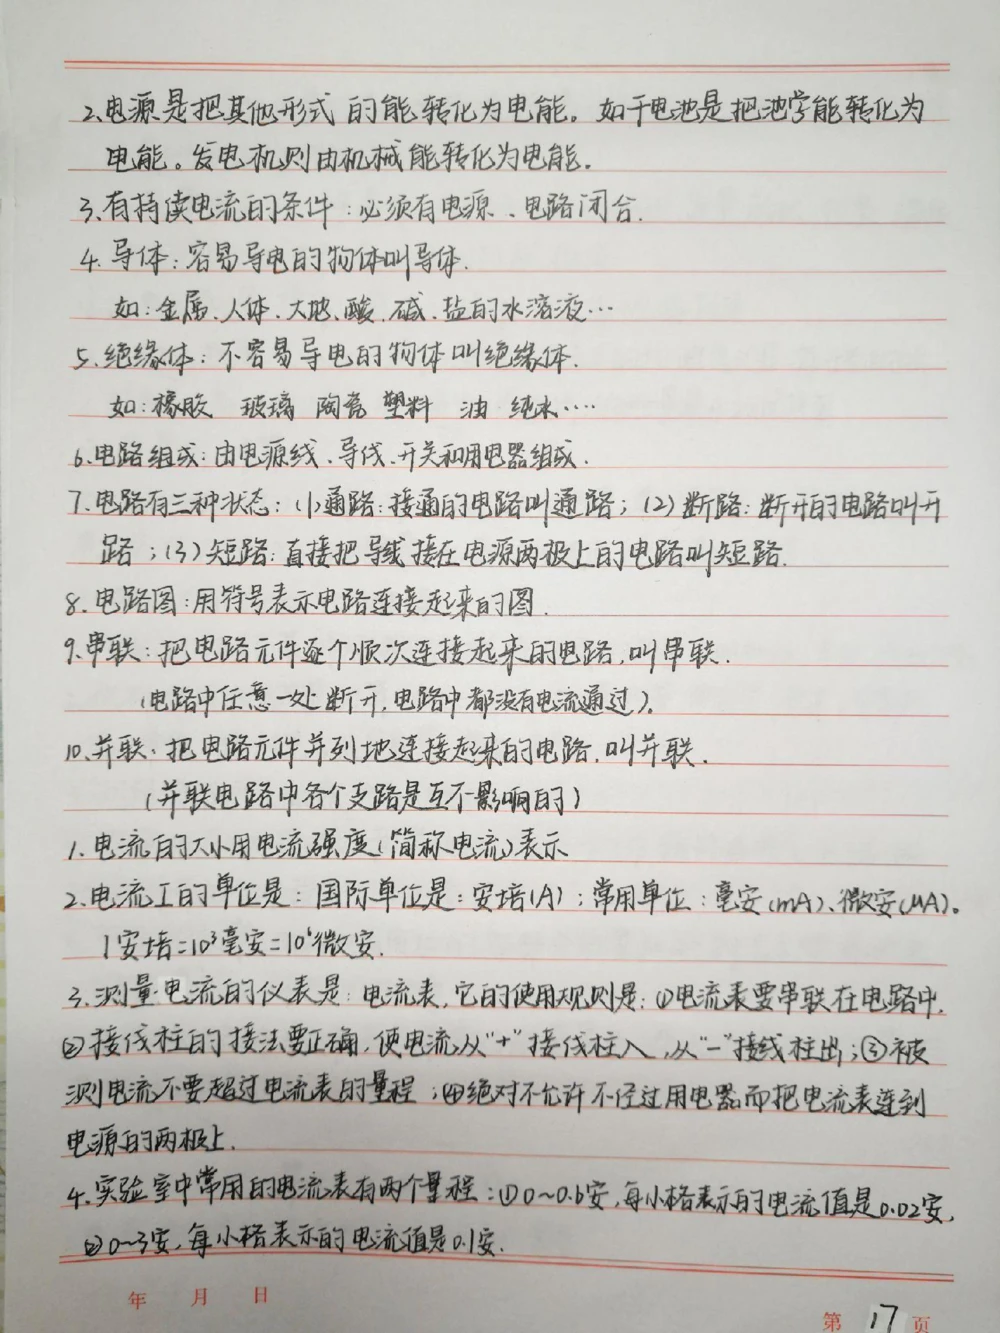 2、电源是把其他形式的能转化为电能。如干电池是把池学能转化为
电能。发电机则由机械能转化为电能。
3、有持续电流的条件：必须有电源、电路闭合.
4、导体：容易导电的物体叫导体.
如：金属、人体、大地、酸、碱、盐的水溶液…
5、绝缘体：不容易导电的物体叫绝缘体.
如：橡胶 玻璃 陶瓷 塑料 油 纯水….
6、电路组成：由电源线、导线、开关和用电器组成.
7、电路有三种状态：(1)通路：接通的电路叫通路；(2)断路：断开的电路叫开
路；(3)短路：直接把导线接在电源两极上的电路叫短路.
8、电路图：用符号表示电路连接起来的图.
9、串联：把电路元件逐个顺次连接起来的电路,叫串联.
(电路中任意一处断开,电路中都没有电流通过)。
10、并联：把电路元件并列地连接起来的电路,叫并联.
(并联电路中各个支路是互不影响的)
1、电流的大小用电流强度(简称电流)表示
2、电流I的单位是：国际单位是：安培(A)；常用单位：毫安(mA)、微安(μA)。
1安培=10³毫安=10⁶微安.
3、测量电流的仪表是：电流表,它的使用规则是：①电流表要串联在电路中,
②接线柱的接法要正确,使电流从"+"接线柱入,从"-"接线柱出；③被
测电流不要超过电流表的量程；④绝对不允许不经过用电器而把电流表连到
电源的两极上.
4、实验室中常用的电流表有两个量程：①0~0.6安,每小格表示的电流值是0.02安,
②0~3安,每小格表示的电流值是0.1安.
年 月 日
第 17 页